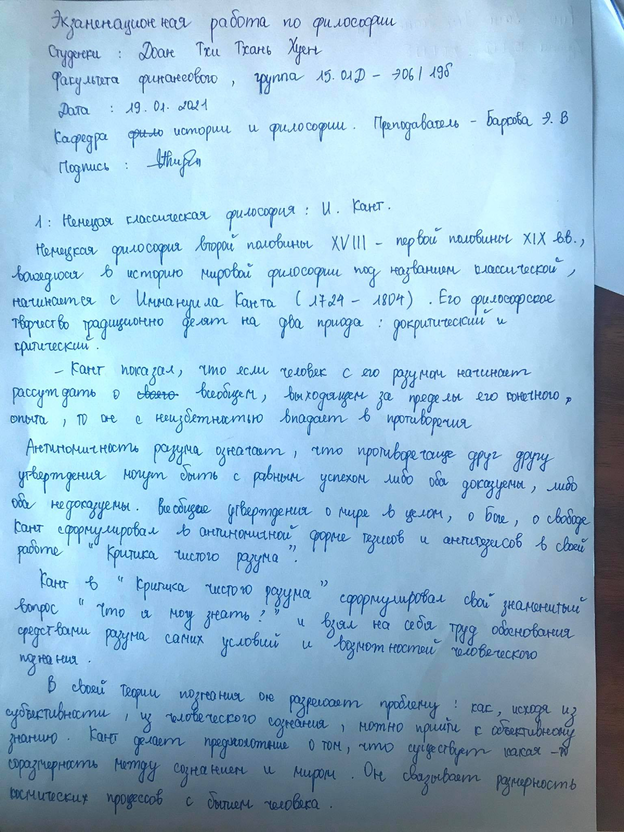 Экзаменационная работа по философии
Студенки : Доан Тхи Тхань Хуен
Факультета финансового , группа 15.01Д – Э06 / 19б
Дата : 19. 01. 2021
Кафедра фило истории и философии. Преподаватель – Баркова Э. В
Подпись :
1 : Немецая классическая философия : И. Кант.
Немецкая философия второй половины XVIII – первой половины XIX в.в.,
вошедшося в историю мировой философии под названием классической,
начинается с Иммануила Канта ( 1724 – 1804) . Его философское
творчество традиционно делят на два приода : докритический и
критический.
– Кант показал, что если человек с его разумом начинает
рассуждать о своего всеобщем, выходящем за пределы его конечного,
опыта, то он с неизбежностью впадает в противоречия
Антиномичность разума означает, что противоречаще друг другу
утверждения могут быть с равным успехом либо оба доказуемы, либо
оба недоказуемы. Всеобщие утверждения о мире в целом, о Боге, о свободе
Кант сформулировал в антиномичной форме тезисов и антитезисов в своей
работе " Критика чистого разума".
Кант в " Критика чистого разума" сформулировал свой знаменитый
вопрос " что я могу знать?" и взял на себя труд обоснования
средствами разума самих условий и возможностей человеческого
познания.
В своей теории познания он разрешает проблему : как, исходя из
субъективности, из человеческого сознания, можно прийти к объективному
знанию. Кант делает предположение о том, что существует какая – то
соразмерность между сознанием и миром. Он связывает размерность
космических процессов с бытием человека.